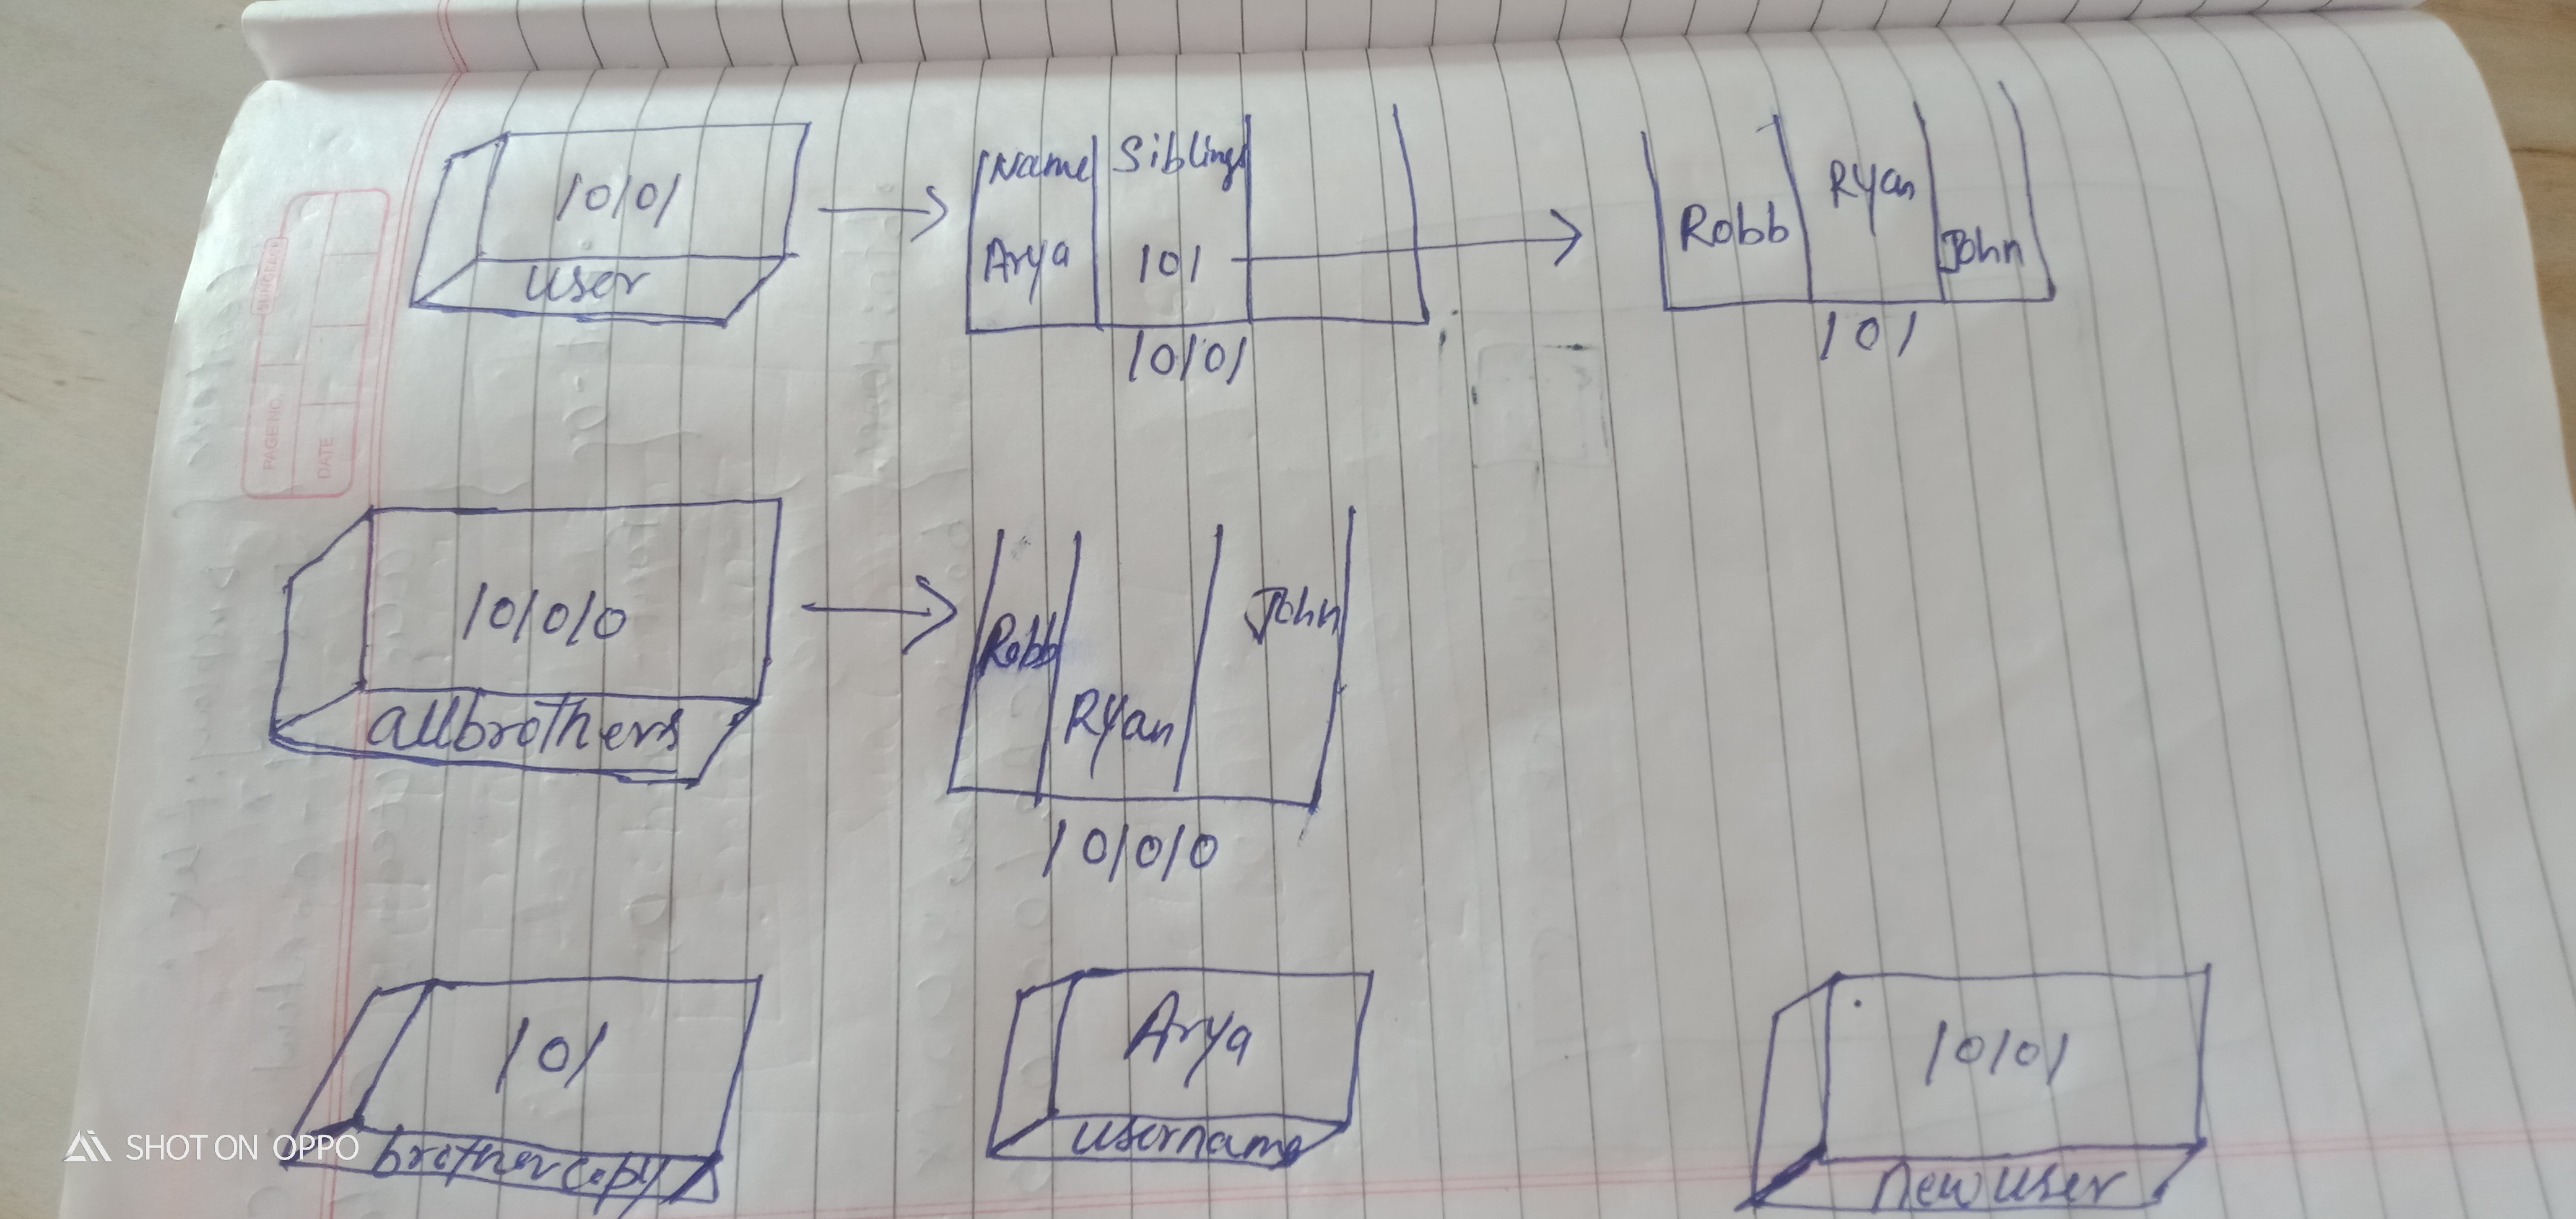 PAGE NO.
DATE
SUNDFACE
10101
user
Name Sibling
Arya 101
10101
Robb Ryan John
101
101010
allbrothers
Robb Ryan John
101010
101
brotherCopy
Arya
username
10101
newuser
SHOT ON OPPO